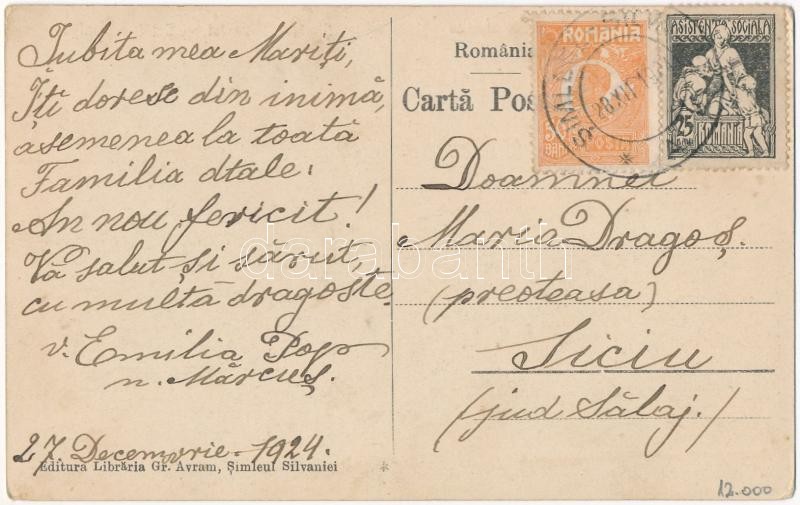 Iubita mea Mariți,
Îți doresc din inimă,
asemenea la toată
Familia dtale:
An nou fericit!
Vă salut și sărut,
cu multă dragoste
v. Emilia Pop
n. Mărcuș.
27 Decemvrie. 1924.
Editura Librăria Gr. Avram, Șimleul Silvaniei
*
România
Cartă Poș
ROMANIA
50 BANI
POSTA
28.XII
ASISTENȚA SOCIALA
25
ROMANIA
Doamnei
Maria Dragoș.
(preoteasa)
Siciu
(jud Sălaj.)
darabanth
12.000